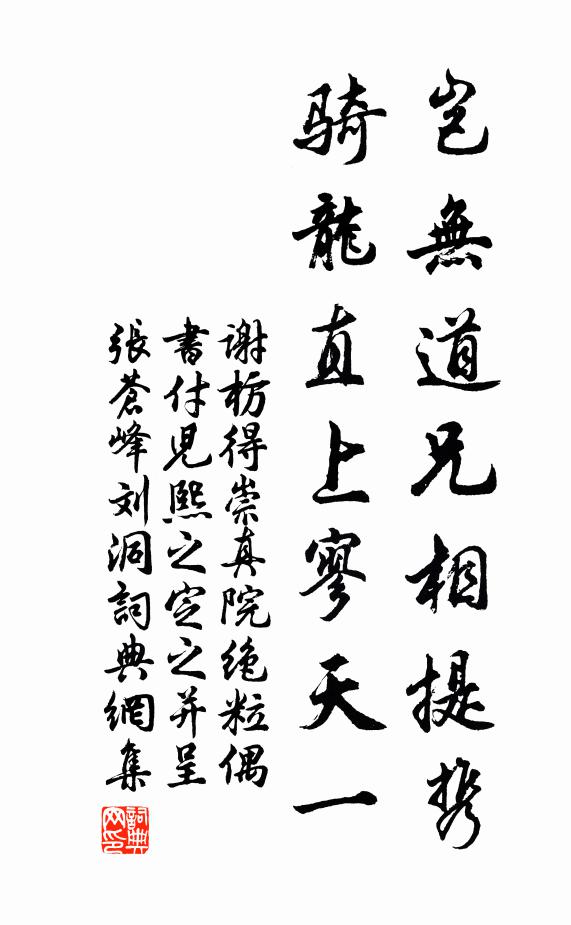 岂無道兄相提携
骑龍直上寥天一
谢枋得崇真院绝粒偶
書付児熙之定之并呈
張蒼峰刘洞詞典網集
詞典网印